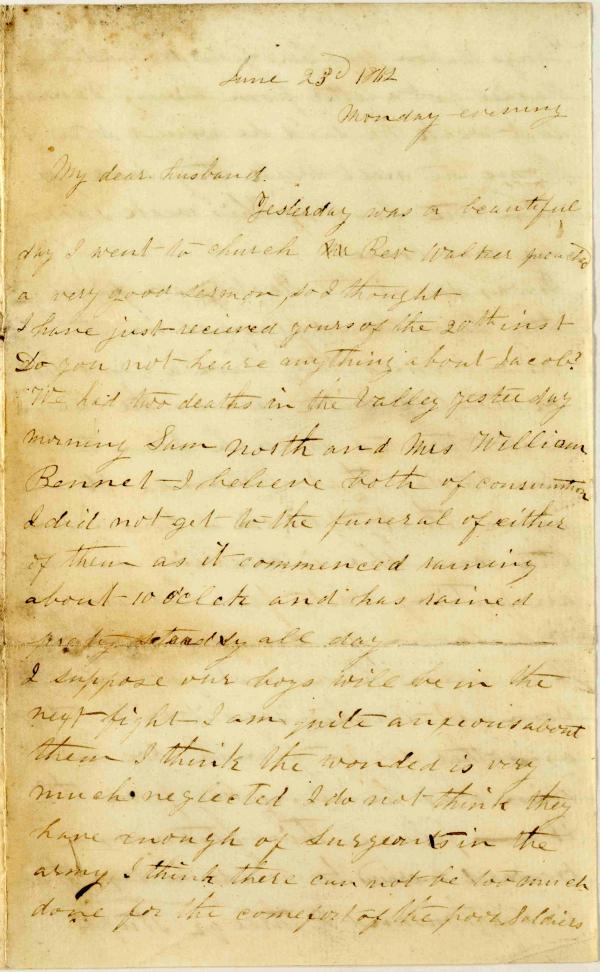 June 23d 1862
Monday evening
My dear husband.
Yesterday was a beautiful
day I went to church Rev Walker preached
a very good sermon, so I thought
I have just recieved yours of the 20th inst
Do you not heare anything about Jacob?
We had two deaths in the Valley yesterday
morning Sam North and Mrs William
Bennet I believe both of consumtion
I did not get to the funeral of either
of them as it commenced raining
about 10 oclck and has rained
prety steadsy all day
I suppose our boys will be in the
next fight I am quite anxious about
them I think the wonded is very
much neglected I do not think they
have enough of surgeons in the
army I think there can not be too much
done for the comefort of the poor Soldiers